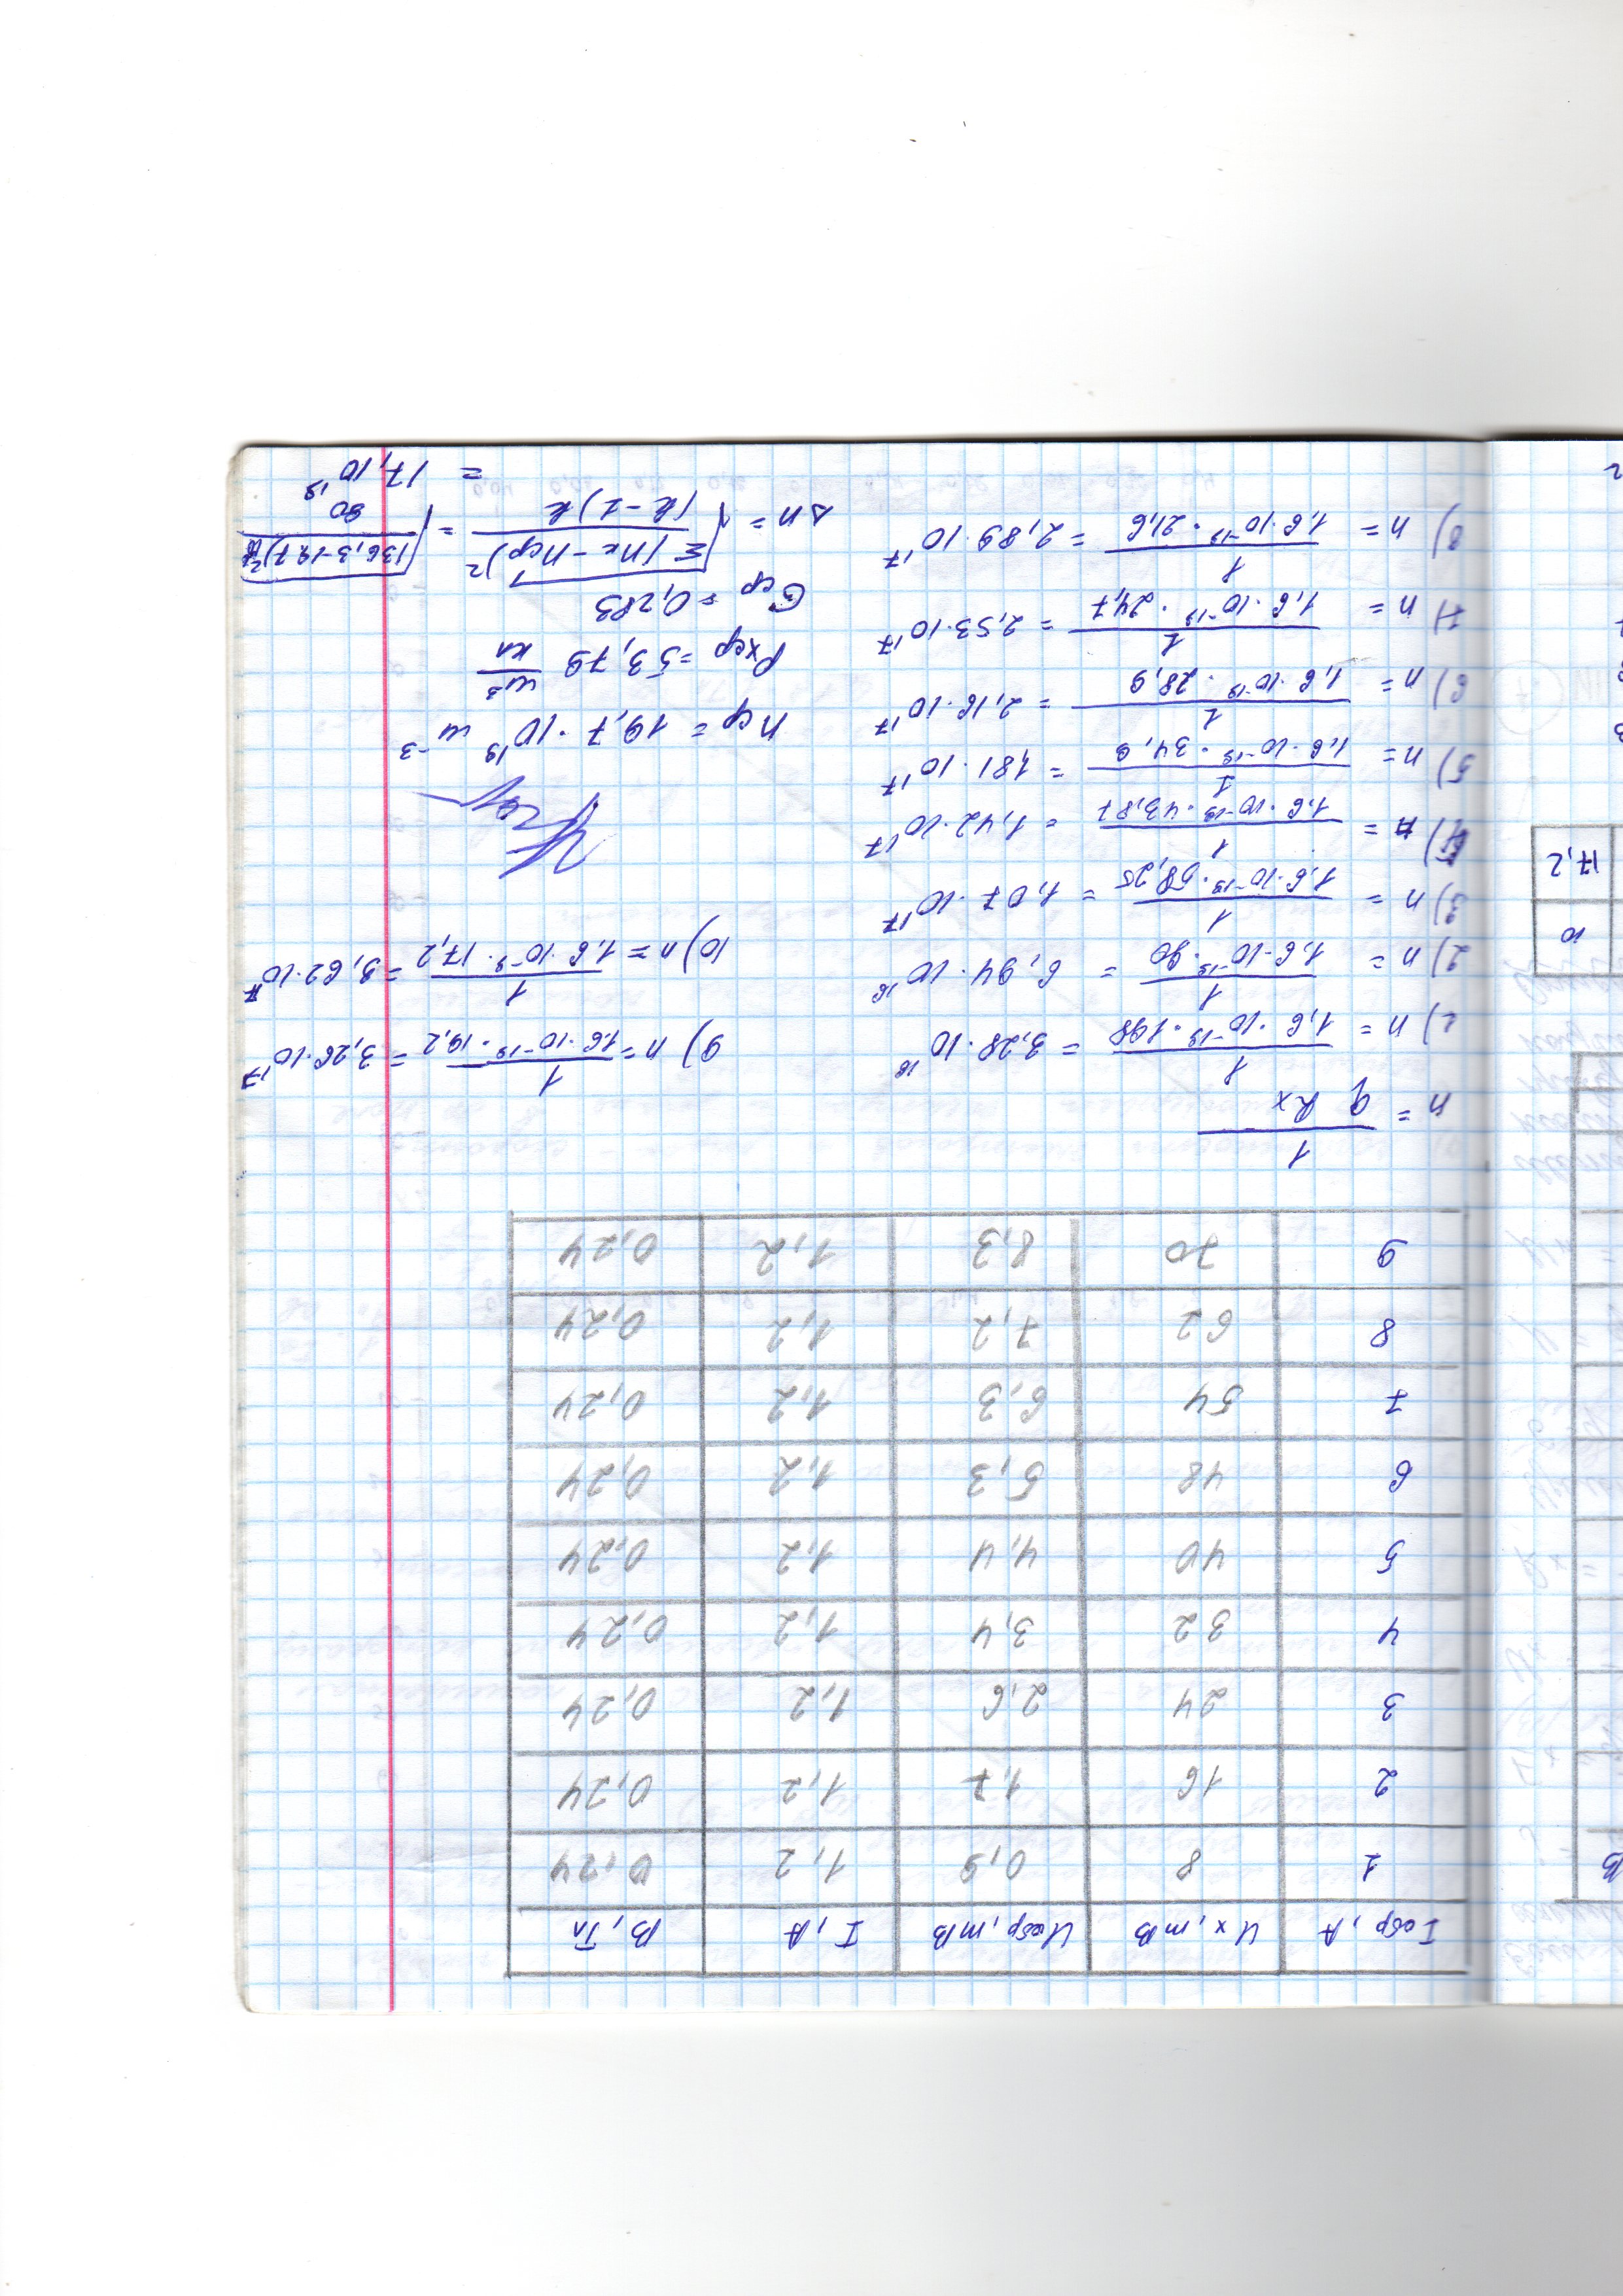 I обр, А U х, mВ Uобр, mВ I, А В, Тл
1 8 0,9 1,2 0,24
2 16 1,7 1,2 0,24
3 24 2,6 1,2 0,24
4 32 3,4 1,2 0,24
5 40 4,4 1,2 0,24
6 48 5,3 1,2 0,24
7 54 6,3 1,2 0,24
8 62 7,2 1,2 0,24
9 70 8,3 1,2 0,24
В
10
17,2
n = 1 / q Rx
1) n = 1 / 1,6 · 10⁻¹⁹ · 198 = 3,28 · 10¹⁶
2) n = 1 / 1,6 · 10⁻¹⁹ · 90 = 6,94 · 10¹⁶
3) n = 1 / 1,6 · 10⁻¹⁹ · 58,25 = 1,07 · 10¹⁷
4) n = 1 / 1,6 · 10⁻¹⁹ · 43,87 = 1,42 · 10¹⁷
5) n = 1 / 1,6 · 10⁻¹⁹ · 34,9 = 1,81 · 10¹⁷
6) n = 1 / 1,6 · 10⁻¹⁹ · 28,9 = 2,16 · 10¹⁷
7) n = 1 / 1,6 · 10⁻¹⁹ · 24,7 = 2,53 · 10¹⁷
8) n = 1 / 1,6 · 10⁻¹⁹ · 21,6 = 2,89 · 10¹⁷
9) n = 1 / 1,6 · 10⁻¹⁹ · 19,2 = 3,26 · 10¹⁷
10) n = 1 / 1,6 · 10⁻⁹ · 17,2 = 3,62 · 10¹⁷
nср = 19,7 · 10¹⁹ м⁻³
Рхср = 53,79 м³/кл
Gср = 0,283
Δn = √(Σ (nк – nср)² / (k – 1) k) = √((36,3 – 19,7)² / 90)
= 17,10¹⁹